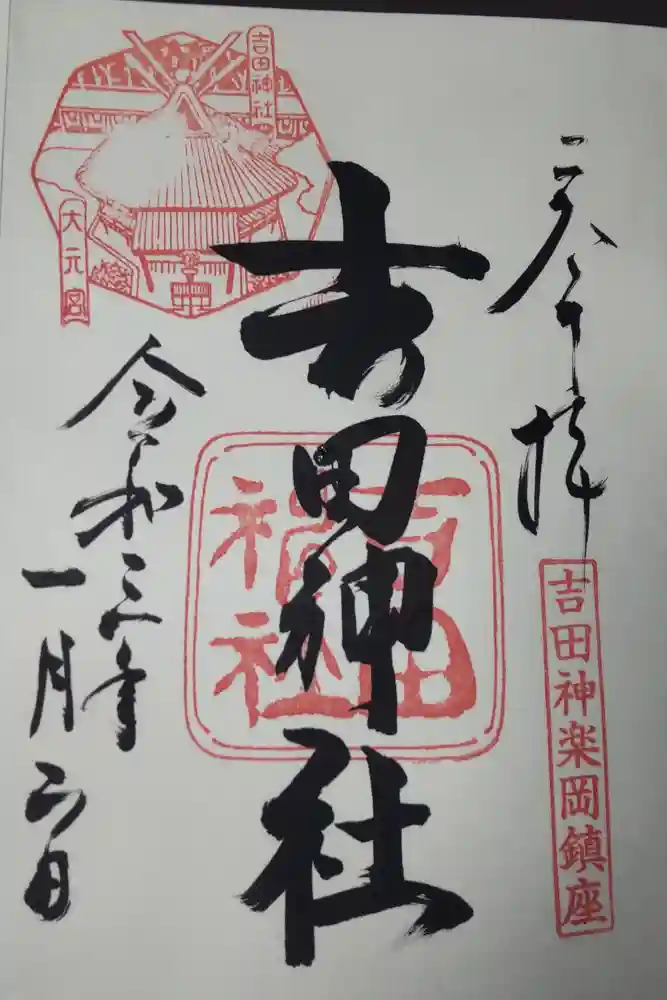 奉拝
吉田神楽岡鎮座
吉田神社
吉田神社
吉田神社
大元宮
令和三年
一月 日